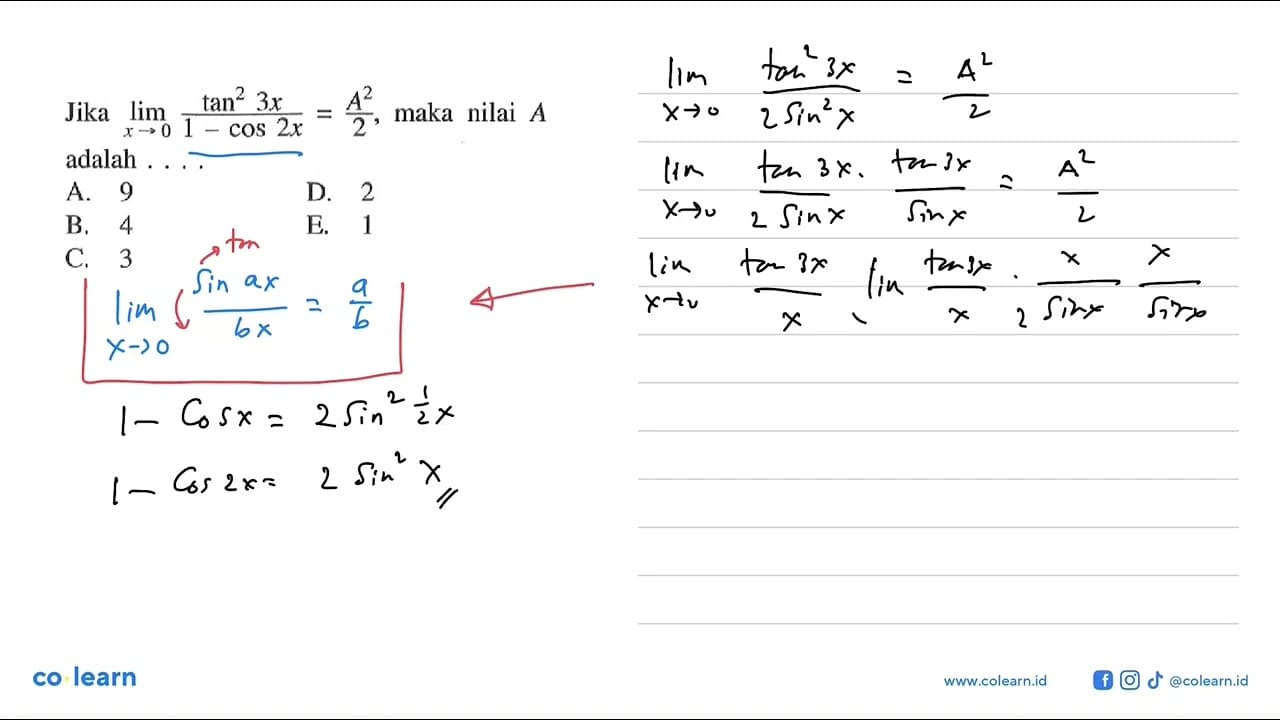 Jika lim x→0 tan² 3x / 1 − cos 2x = A²/2, maka nilai A
adalah . . . .
A. 9 D. 2
B. 4 E. 1
C. 3
tan
lim x→0 sin ax / bx = a/b
1 − Cos x = 2 Sin² 1/2 x
1 − Cos 2x = 2 Sin² x
lim x→0 tan² 3x / 2 Sin² x = A²/2
lim x→0 tan 3x . / 2 Sin x tan 3x / Sin x = A²/2
lim x→0 tan 3x / x lim tan 3x / x . x / 2 Sin x x / Sin x
co learn
www.colearn.id
@colearn.id